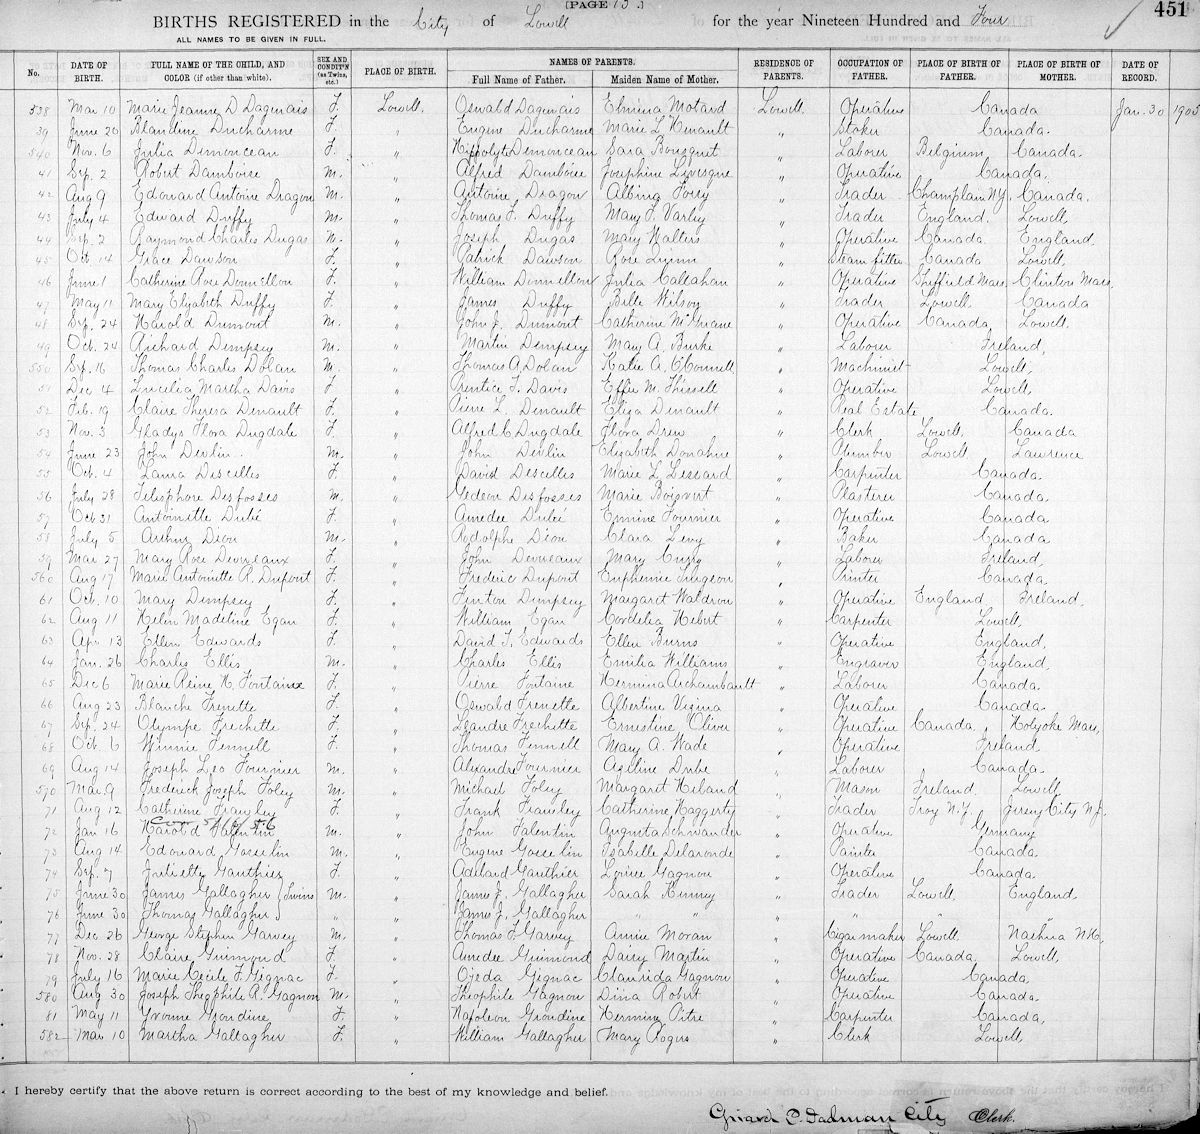 [PAGE 13.] 451
BIRTHS REGISTERED in the City of Lowell for the year Nineteen Hundred and Four
ALL NAMES TO BE GIVEN IN FULL.
No. DATE OF BIRTH. FULL NAME OF THE CHILD, AND COLOR (if other than white). SEX AND CONDIT'N (as Twins, etc.) PLACE OF BIRTH. NAMES OF PARENTS. Full Name of Father. Maiden Name of Mother. RESIDENCE OF PARENTS. OCCUPATION OF FATHER. PLACE OF BIRTH OF FATHER. PLACE OF BIRTH OF MOTHER. DATE OF RECORD.
538 Mar 10 Marie Jeanne D Dagenais F. Lowell. Oswald Dagenais Elmina Motard Lowell. Operative Canada Jan. 30 1905
39 June 20 Blandine Ducharme F. " Eugene Ducharme Marie L Henault " Stoker Canada.
540 Nov. 6 Julia Demoncean F. " Hippolyte Demoncean Sara Bousquet " Laborer Belgium Canada.
41 Sep. 2 Robert Damboise M. " Alfred Damboise Josephine Livesque " Operative Canada.
42 Aug 9 Edouard Antoine Dragon M. " Antoine Dragon Albina Forry " Trader Champlain N.Y. Canada.
43 July 4 Edward Duffy M. " Thomas F. Duffy Mary F. Varley " Trader England. Lowell,
44 Sep. 2 Raymond Charles Dugas M. " Joseph Dugas Mary Walters " Operative Canada. England.
45 Oct. 14 Grace Dawson F. " Patrick Dawson Rose Lynn " Steam fitter Canada Lowell,
46 June 1 Catherine Rose Donnellon F. " William Donnellon Julia Callahan " Operative Sheffield Mass. Clinton Mass.
47 May 11 Mary Elizabeth Duffy F. " James Duffy Belle Wilson " Trader Lowell. Canada
48 Sep. 24 Harold Dumont M. " John J. Dumont Catherine McGruane " Operative Canada, Lowell.
49 Oct. 24 Richard Dempsey M. " Martin Dempsey Mary A Burke " Laborer Ireland,
550 Sep. 16 Thomas Charles Dolan M. " Thomas A. Dolan Katie A. O'Connell " Machinist Lowell,
51 Dec 4 Lucelia Martha Davis F. " Prentice F. Davis Effie M. Thissell " Operative Lowell,
52 Feb. 19 Claire Theresa Denault F. " Pierre L. Denault Eliza Denault " Real Estate Canada.
53 Nov. 3 Gladys Flora Dugdale F. " Alfred C Dugdale Flora Drew " Clerk Lowell, Canada
54 June 23 John Devlin M. " John Devlin Elizabeth Donahue " Plumber Lowell Lawrence
55 Oct. 4 Laura Descelles F. " David Descelles Marie L Lessard " Carpenter Canada.
56 July 28 Telesphore Desfosses M. " Gedeon Desfosses Marie Boisvert " Plasterer Canada.
57 Oct 31 Antoinette Dubé F. " Amedee Dubé Emine Fournier " Operative Canada
58 July 5 Arthur Dion M. " Rodolphe Dion Clara Levy " Baker Canada.
59 Mar 27 Mary Rose Devereaux F. " John Devereaux Mary Curry " Laborer Ireland,
560 Aug 17 Marie Antoinette R. Dupont F. " Frederic Dupont Euphemie " Printer Canada,
61 Oct. 10 Mary Dempsey F. " Finton Dempsey Margaret Waldron " Operative England Ireland.
62 Aug 11 Helen Madeline Egan F. " William Egan Cordelia Hebert " Carpenter Lowell,
63 Apr 13 Ellen Edwards F. " David T. Edwards Ellen Burns " Operative England,
64 Jan. 26 Charles Ellis M. " Charles Ellis Emilia Williams " Engraver England,
65 Dec 6 Marie Reine H. Fontaine F. " Pierre Fontaine Hermina Archambault " Laborer Canada.
66 Aug 23 Blanche Frenette F. " Oswald Frenette Albertine Vezina " Operative Canada.
67 Sep. 24 Olympe Frechette F. " Leandre Frechette Ernestine Olivier " Operative Canada, Holyoke Mass,
68 Oct. 6 Winnie Fennell F. " Thomas Fennell Mary A. Wade " Operative Ireland,
69 Aug 14 Joseph Leo Fournier M. " Alexandre Fournier Azeline Dube " Laborer Canada.
570 Mar. 9 Frederick Joseph Foley M. " Michael Foley Margaret Hiland " Mason Ireland, Lowell
71 Aug 12 Catherine Frawley F. " Frank Frawley Catherine Haggerty " Trader Troy N.Y. Jersey City N.J.
72 Jan 16 Harold Falentin M. " John Falentin Augusta Schwander " Operative Germany
73 Aug 14 Edouard Gosselin M. " Eugene Gosselin Isabelle Delaronde " Painter Canada.
74 Sep. 7 Juliette Gauthier F. " Adelard Gauthier Louise Gagnon " Operative Canada.
75 June 30 James Gallagher (Twins M. " James J. Gallagher Sarah Kenney " Trader Lowell, England,
76 June 30 Thomas Gallagher " " James J. Gallagher " " " " " "
77 Dec 26 George Stephen Garvey M. " Thomas F. Garvey Annie Moran " Cigar maker Lowell. Nashua N.H.,
78 Nov. 28 Claire Guimond F. " Amedee Guimond Daisy Martin " Operative Canada, Lowell,
79 July 16 Marie Cecile F. Gignac F. " Ojeda Gignac Clarinda Gagnon " Operative Canada,
580 Aug 30 Joseph Theophile R. Gagnon M. " Theophile Gagnon Dina Robert " Operative Canada.
81 May 11 Yvonne Grondine F. " Napoleon Grondine Hermine Pitre " Carpenter Canada,
582 Mar 10 Martha Gallagher F. " William Gallagher Mary Rogers " Clerk Lowell,
I hereby certify that the above return is correct according to the best of my knowledge and belief.
Girard P. Dadman City Clerk.